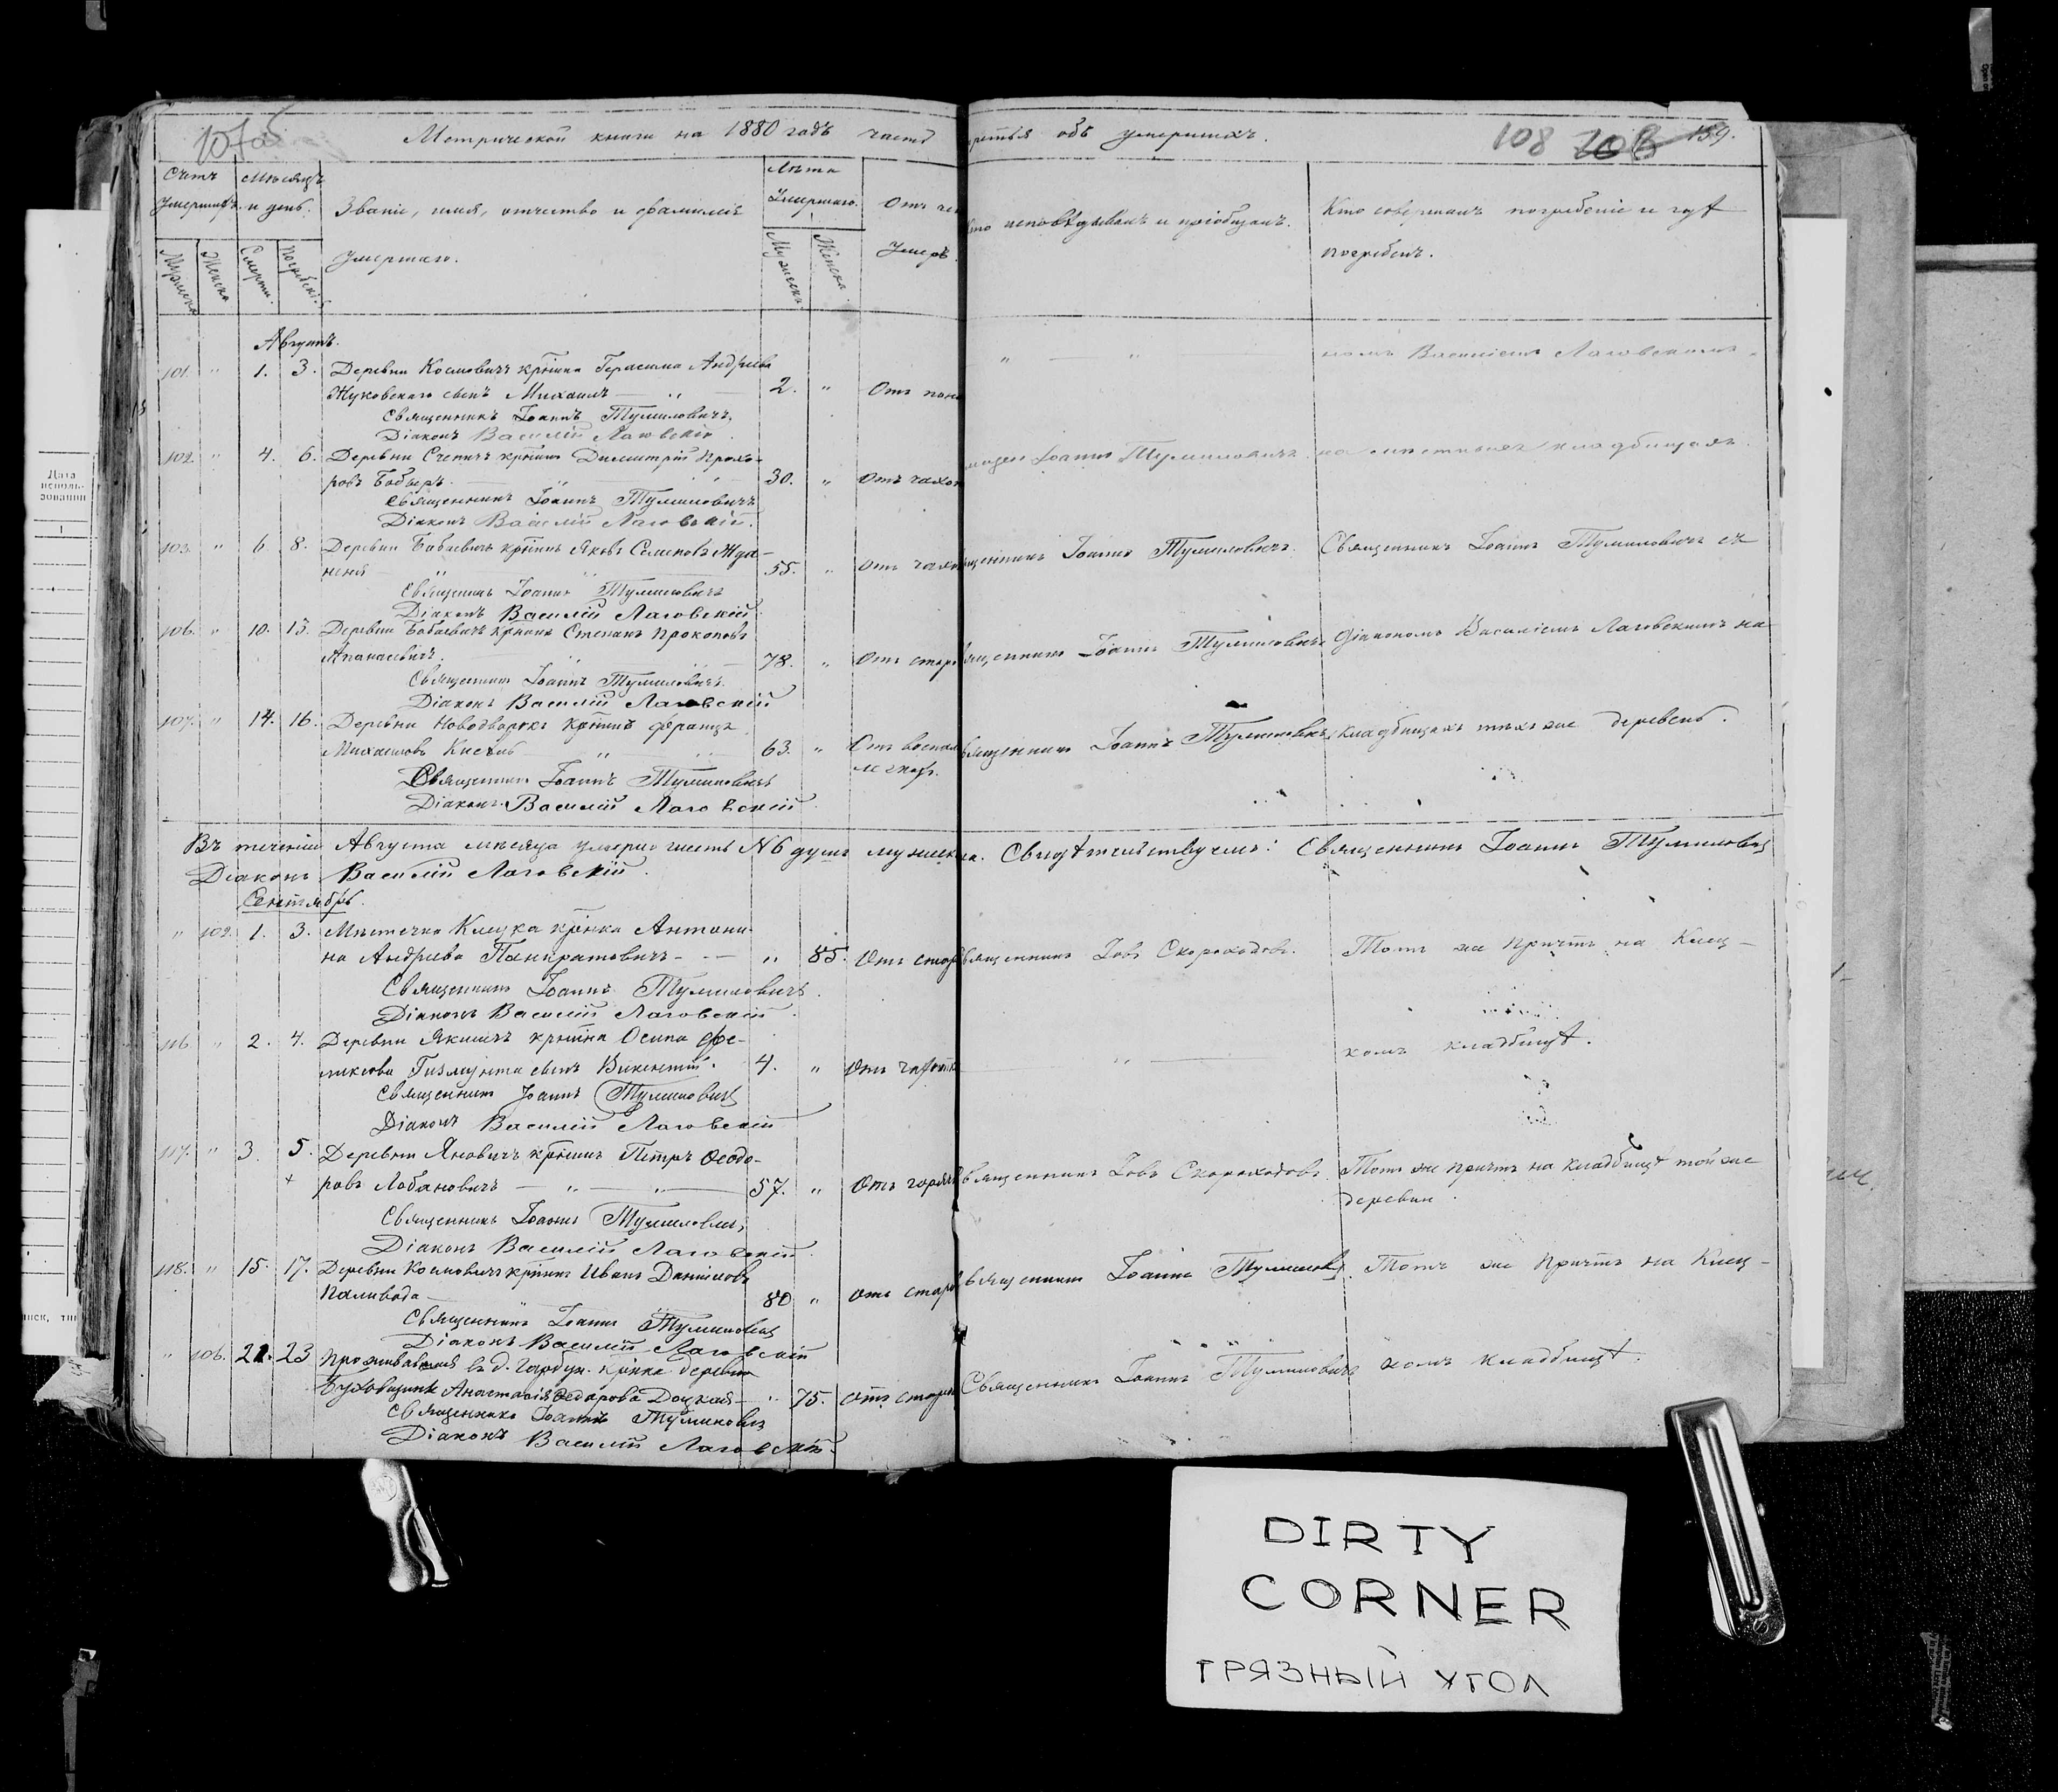 107об
Метрической книги на 1880 годъ часть третья объ умершихъ.
108 159.
Счетъ умершихъ.
Мѣсяцъ и день.
Званіе, имя, отчество и фамилія умершаго.
Лѣта умершаго.
Отъ чего умеръ.
Кто исповѣдывалъ и пріобщалъ.
Кто совершалъ погребеніе и гдѣ погребенъ.
Мужеска
Женска
Смерти.
Погребенія.
Мужеска
Женска.
Августъ.
101. " 1. 3. Деревни Космовичъ крѣстина Герасима Андреева
Жуковскаго сынъ Михаилъ — " — 2. " Отъ " — " номъ Василіемъ Лаговскимъ
Священникъ Іоаннъ Тумиловичъ
Діаконъ Василій Лаговскій
102. " 4. 6. Деревни крѣстнинъ Димитрій Прохо-
ровъ Бобыръ. 30. " Отъ чахот Іоаннъ Тумиловичъ. на мѣстныхъ кладбищахъ.
Священникъ Іоаннъ Тумиловичъ
Діаконъ Василій Лаговскій.
103. " 6. 8. Деревни Бабаевичъ крѣстнинъ Яковъ Семеновъ Жда-
неня 55. " Отъ чахот щенникъ Іоаннъ Тумиловичъ. Священникъ Іоаннъ Тумиловичъ съ
Священникъ Іоаннъ Тумиловичъ
Діаконъ Василій Лаговскій
106. " 10. 13. Деревни Бабаевичъ крѣстнинъ Степанъ Прокоповъ
Апанасевичъ. 78. " Отъ старо вященникъ Іоаннъ Тумиловичъ діакономъ Василіемъ Лаговскимъ на
Священникъ Іоаннъ Тумиловичъ.
Діаконъ Василій Лаговскій
107. " 14. 16. Деревни Новодворокъ крѣстнинъ Францъ
Михайловъ " 63. " Отъ воспал вященникъ Іоаннъ Тумиловичъ кладбищахъ тѣхъ же деревень.
легкихъ.
Священникъ Іоаннъ Тумиловичъ
Діаконъ Василій Лаговскій.
Въ теченіи Августа мѣсяца умерло шесть № 6 душъ мужеска. Свидѣтельствуемъ: Священникъ Іоаннъ Тумиловичъ
Діаконъ Василій Лаговскій.
Сентябрь.
" 102. 1. 3. Мѣстечка Клецка крѣстнка Антони-
на Андреева Панкратовичъ — " 85. Отъ старо вященникъ Іовъ Скороходовъ. Тотъ же причтъ на Клец-
Священникъ Іоаннъ Тумиловичъ.
Діаконъ Василій Лаговскій
116. " 2. 4. Деревни Якшичъ крѣстнина Осипа Фе-
ликсова Гизмунта сынъ Викентій. 4. " Отъ " — комъ кладбищѣ.
Священникъ Іоаннъ Тумиловичъ
Діаконъ Василій Лаговскій
117. " 3. 5. Деревни Яновичъ крѣстнинъ Петръ Ѳеодо-
ровъ Лобановичъ — " — " — 57. " Отъ горяч вященникъ Іовъ Скороходовъ. Тотъ же причтъ на кладбищѣ той же
деревни.
Священникъ Іоаннъ Тумиловичъ
Діаконъ Василій Лаговскій.
118. " 15. 17. Деревни Космовичъ крѣстнинъ Иванъ Даниловъ
Паливода 80 " Отъ старо вященникъ Іоаннъ Тумиловичъ. Тотъ же причтъ на Клец-
Священникъ Іоаннъ Тумиловичъ
Діаконъ Василій Лаговскій
" 106. 21. 23 Проживавшая въ д. крѣстнка деревни
Анастасія Ѳедорова Доцкая — " 75. Отъ старо Священникъ Іоаннъ Тумиловичъ комъ кладбищѣ.
Священникъ Іоаннъ Тумиловичъ
Діаконъ Василій Лаговскій.
Дата
исполь-
зования
1
DIRTY
CORNER
ГРЯЗНЫЙ УГОЛ